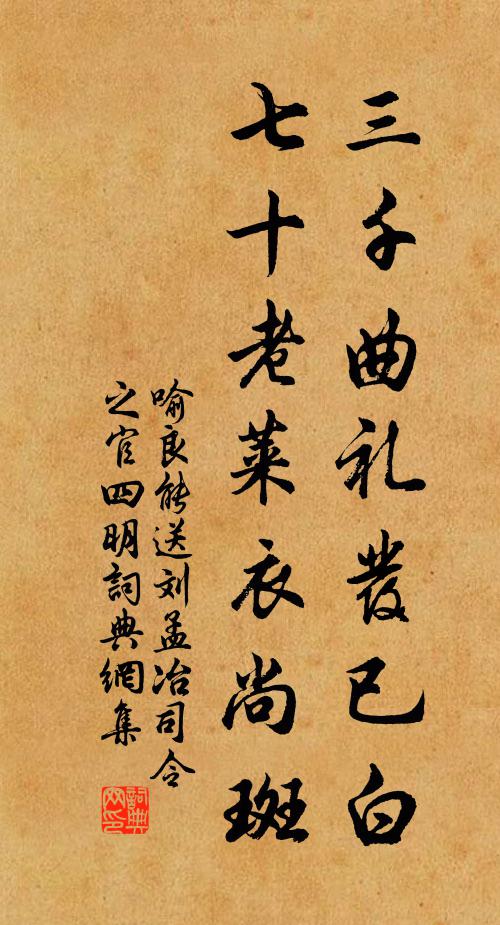 三千曲礼發已白
七十老莱衣尚斑
喻良能送刘孟冶司令
之官四明詞典網集
詞典網印